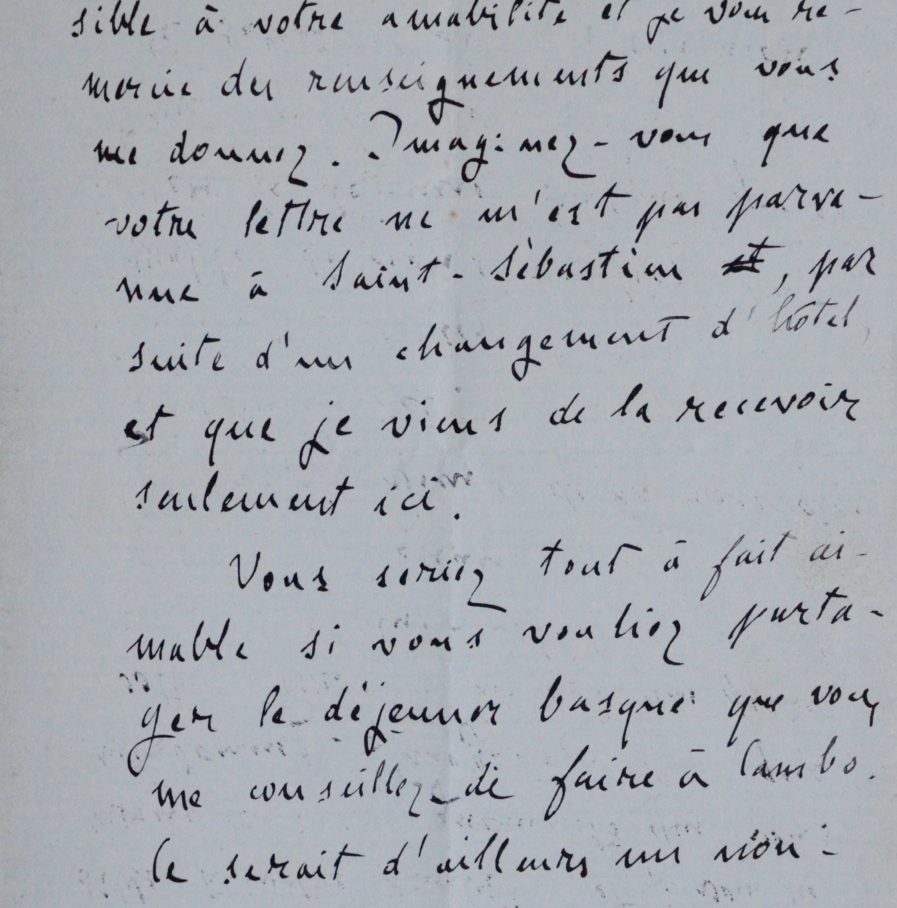 sible à votre amabilité et je vous re-
mercie des renseignements que vous
me donnez. Imaginez-vous que
votre lettre ne m'est pas parve-
nue à Saint-Sébastien et, par
suite d'un changement d'hôtel,
et que je viens de la recevoir
seulement ici.
Vous seriez tout à fait ai-
mable si vous vouliez parta-
ger le déjeuner basque que vous
me conseillez de faire à Cambo.
Ce serait d'ailleurs un